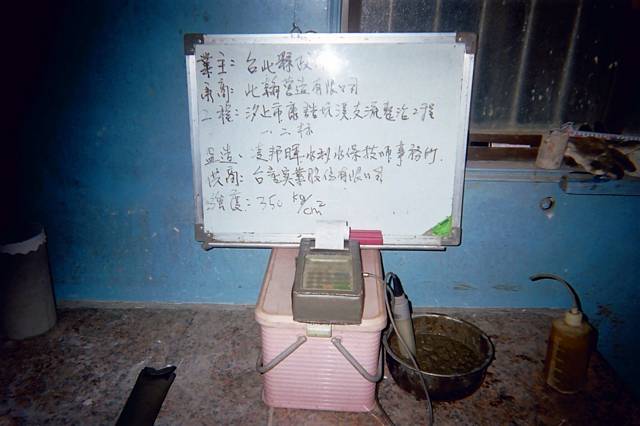 業主：台北縣政
承商：北翰營造有限公司
工程：汐止市康誥坑溪支流整治工程
一、二標
監造：凌邦暉水利水保技師事務所
廠商：台產實業股份有限公司
強度：350 kg/cm²